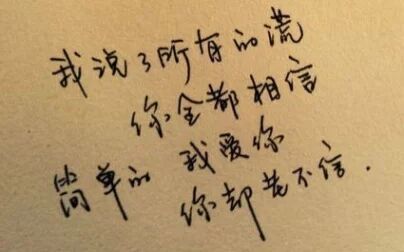 我说了所有的谎
你全都相信
简单的 我爱你
你却老不信.